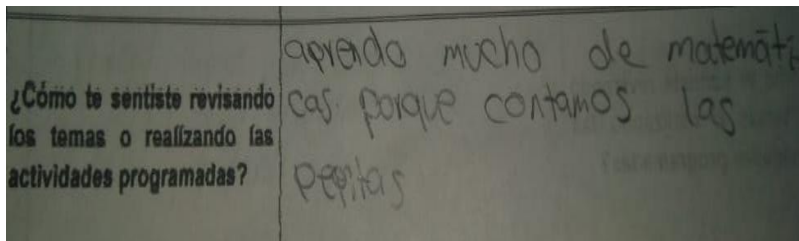 ¿Cómo te sentiste revisando
los temas o realizando las
actividades programadas?
aprendo mucho de matemáti
cas porque contamos las
pepitas